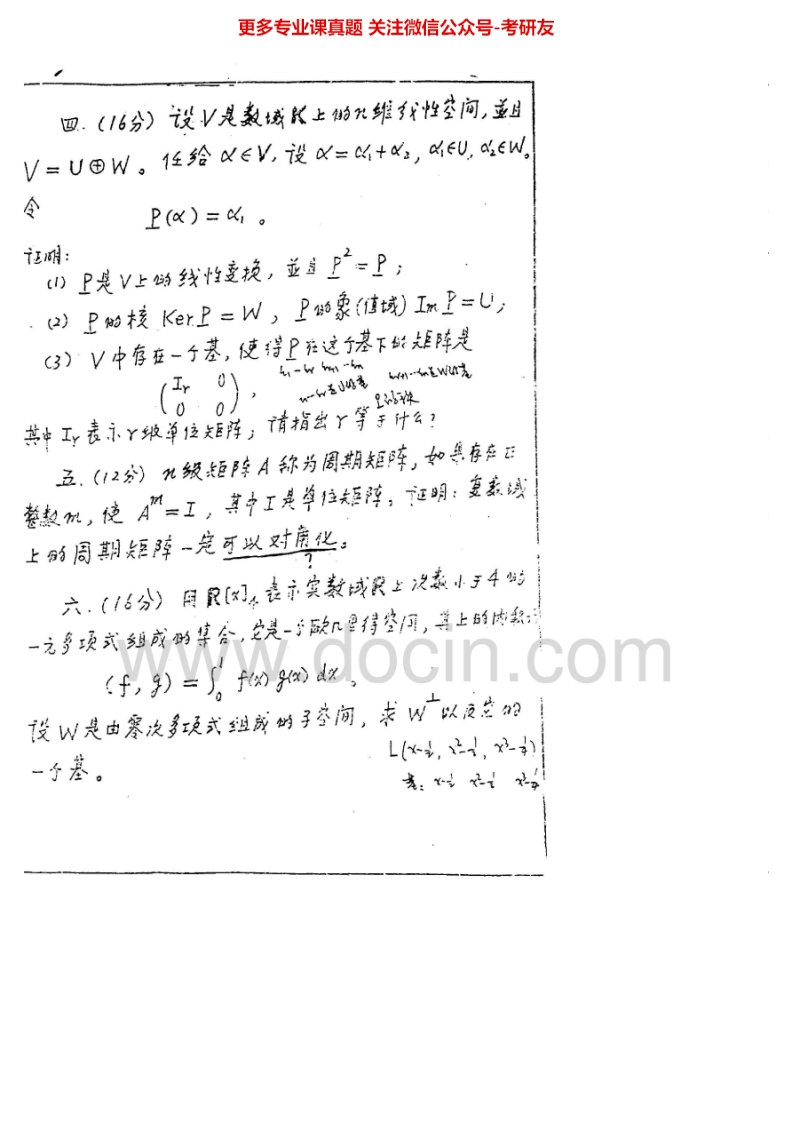 更多专业课真题 关注微信公众号-考研友
四.(16分) 设V是数域K上的n维线性空间,並且
V=U⊕W。任给α∈V,设α=α₁+α₂, α₁∈U, α₂∈W。
令
P(α)=α₁。
证明:
(1) P是V上的线性变换,並且P²=P;
(2) P的核 Ker P=W, P的象(值域) Im P=U;
(3) V中存在一个基,使得P在这个基下的矩阵是
(Ir 0
0 0),
其中Ir表示r级单位矩阵;请指出r等于什么?
五.(12分) n级矩阵A称为周期矩阵,如果存在正
整数m,使 Aᵐ=I,其中I是单位矩阵。证明:复数域
上的周期矩阵一定可以对角化。
?
六.(16分) 用R[x]₄表示实数域R上次数小于4的
一元多项式组成的集合,它是一个欧几里得空间,其上的内积
(f, g)=∫₀¹ f(x)g(x)dx。
设W是由零次多项式组成的子空间,求W⊥以及它的
一个基。
L(x-½, x²-⅓, x³-¼)
基: x-½ x²-⅓ x³-¼
www.docin.com